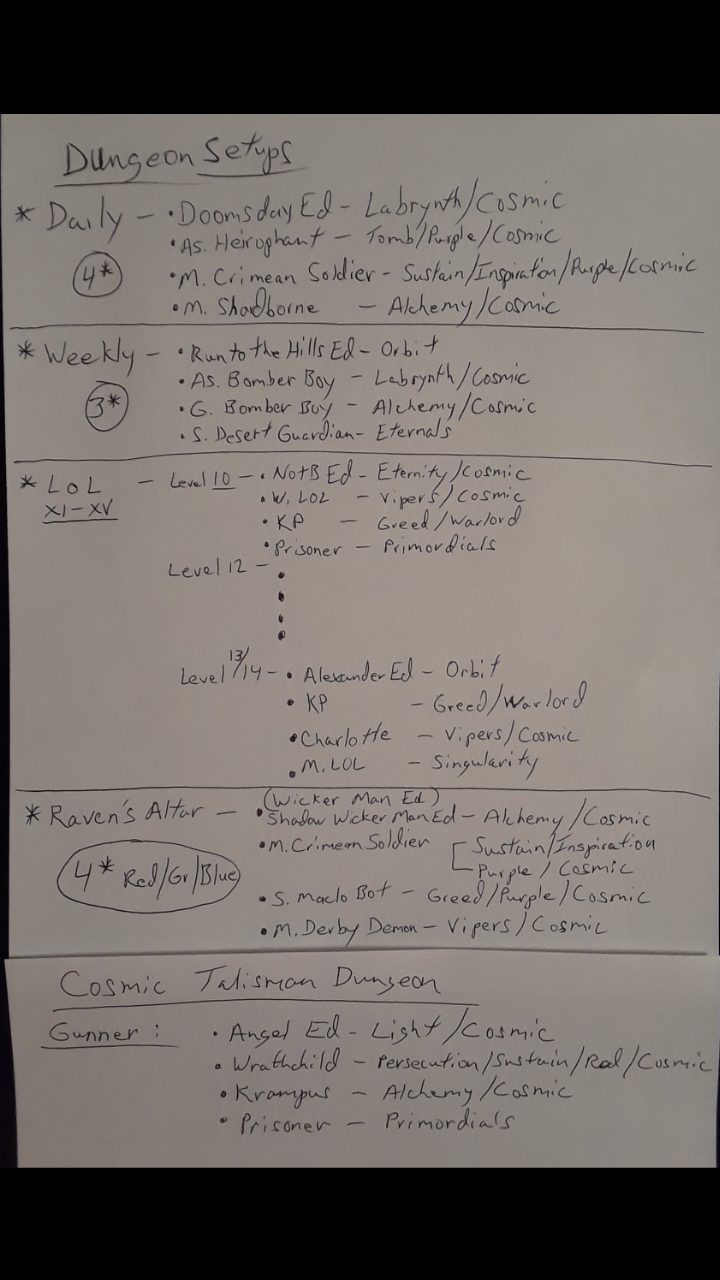 Dungeon Setups
* Daily - • Doomsday Ed - Labrynth/Cosmic
• As. Heirophant - Tomb/Purple/Cosmic
4* • M. Crimean Soldier - Sustain/Inspiration/Purple/Cosmic
• M. Shardborne - Alchemy/Cosmic
* Weekly - • Run to the Hills Ed - Orbit
• As. Bomber Boy - Labrynth/Cosmic
3* • G. Bomber Boy - Alchemy/Cosmic
• S. Desert Guardian - Eternals
* LOL - Level 10 - • NotB Ed - Eternity/Cosmic
XI-XV • W. LOL - Vipers/Cosmic
• KP - Greed/Warlord
• Prisoner - Primordials
Level 12 - •
•
•
•
Level 13/14 - • Alexander Ed - Orbit
• KP - Greed/Warlord
• Charlotte - Vipers/Cosmic
• M. LOL - Singularity
(Wicker Man Ed)
* Raven's Altar - • Shadow Wicker Man Ed - Alchemy/Cosmic
• M. Crimean Soldier [ Sustain/Inspiration
4* Red/Gr/Blue Purple/Cosmic
• S. Maclo Bot - Greed/Purple/Cosmic
• M. Derby Demon - Vipers/Cosmic
Cosmic Talisman Dungeon
Gunner: • Angel Ed - Light/Cosmic
• Wrathchild - Persecution/Sustain/Red/Cosmic
• Krampus - Alchemy/Cosmic
• Prisoner - Primordials